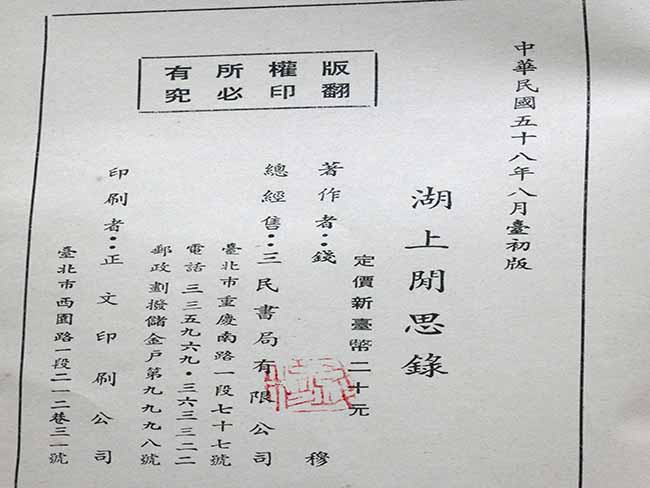 中華民國五十八年八月臺初版
版權所有
翻印必究
湖上閒思錄
定價新臺幣二十元
著作者：錢穆
總經售：三民書局有限公司
臺北市重慶南路一段七十七號
電話三三五九六九・三六三三二二
郵政劃撥儲金戶第九九九八號
印刷者：正文印刷公司
臺北市西園路一段二一二巷三一號